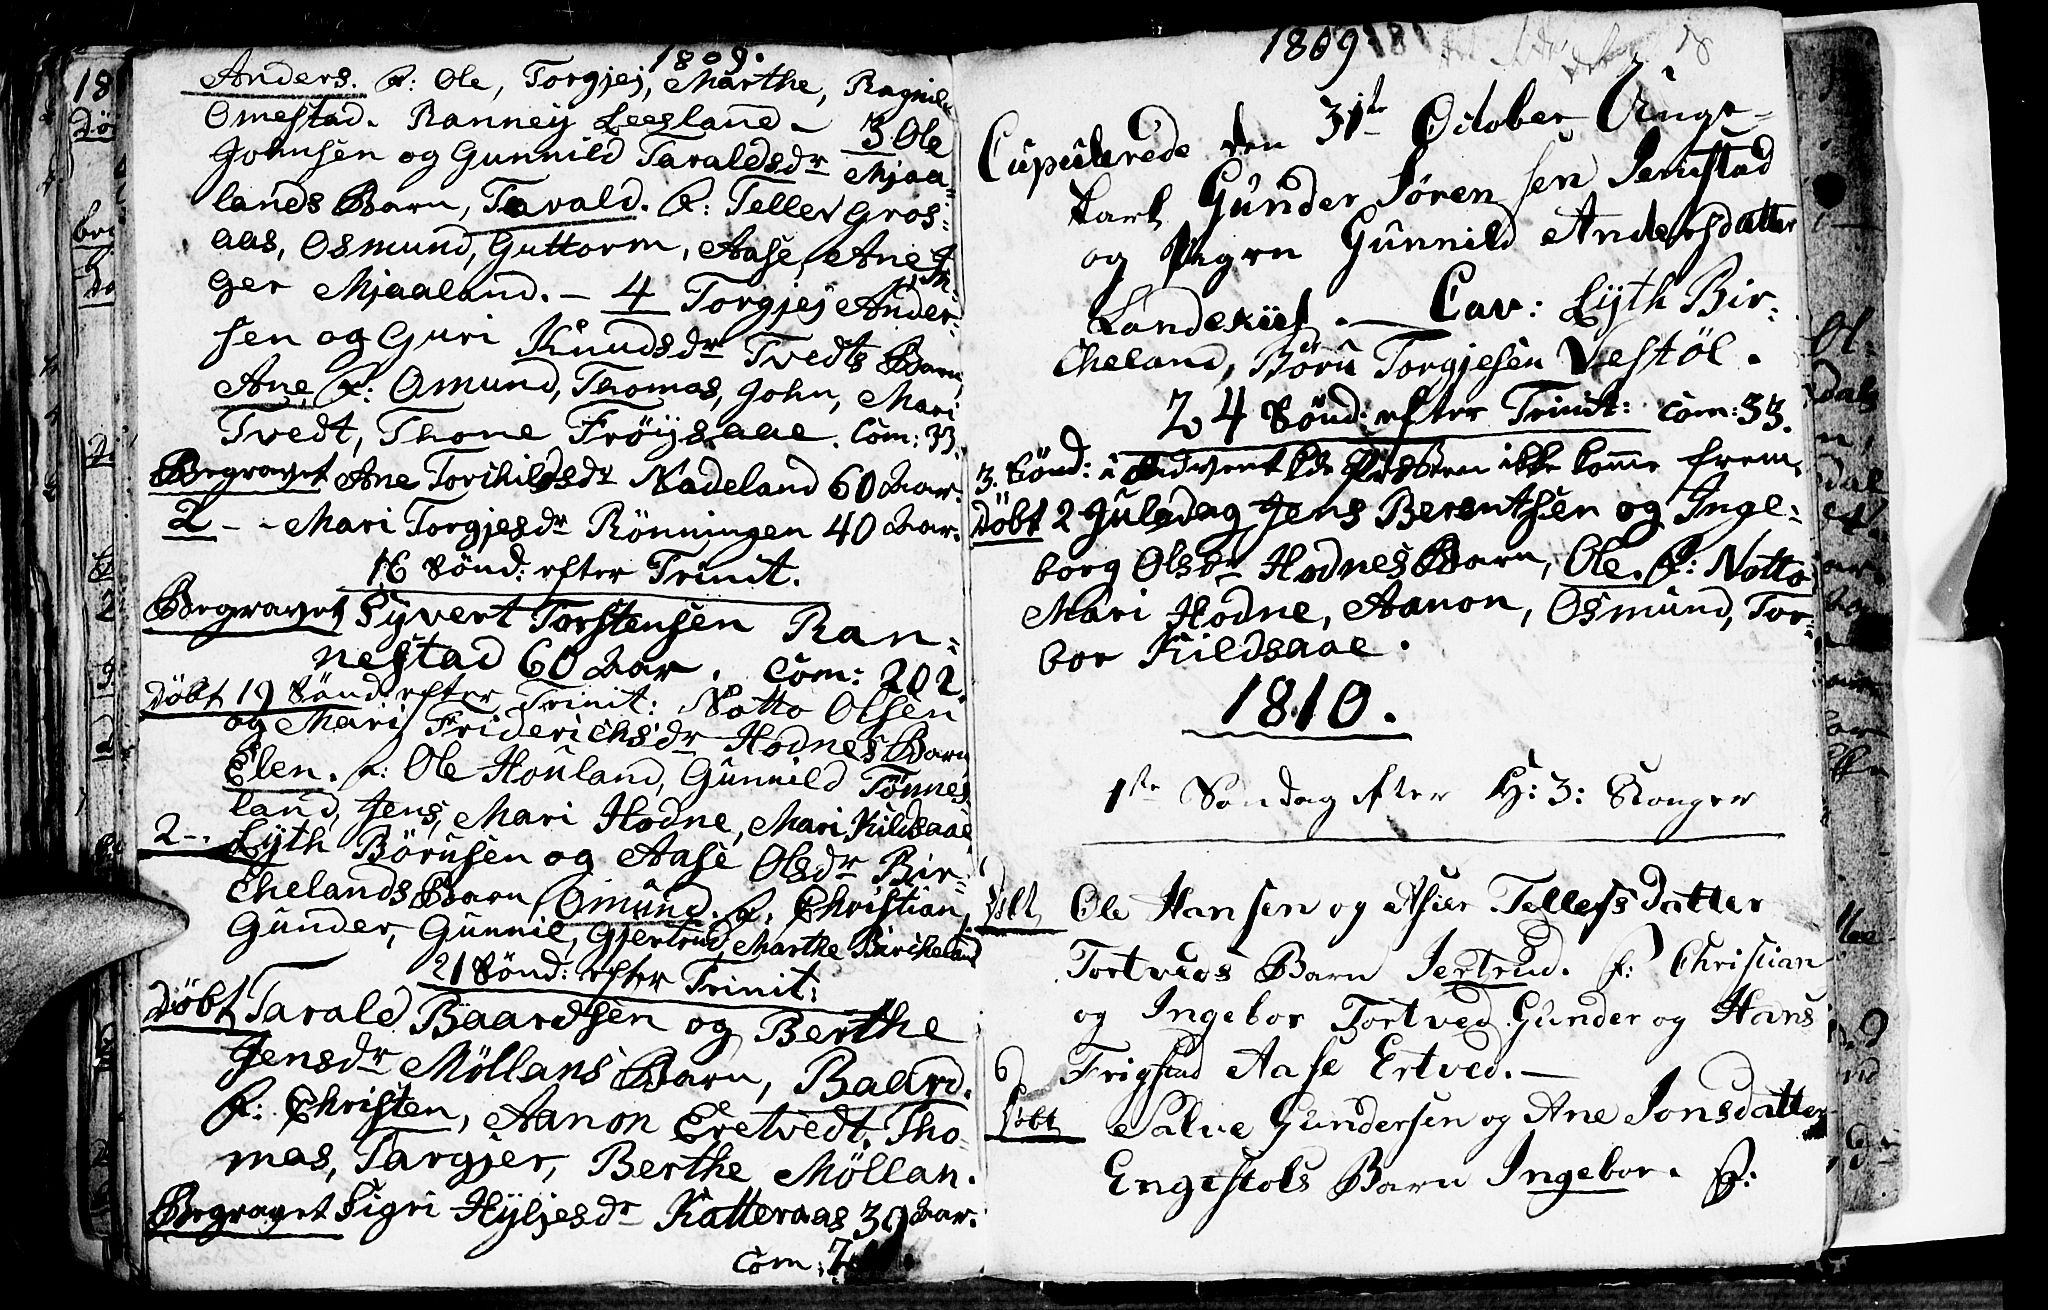 1809.
Anders. F: Ole, Torgjej, Marthe, Ragnild
Omestad. Ranney Leesland. – 3 Ole
Johnsen og Gunnild Taraldsdr Mjaa-
lands Barn, Tarald. F: Tellev Gros-
aas, Osmund, Guttorm, Aase, Ane J
ger Mjaaland. – 4 Torgjej Ander-
sen og Guri Knudsdr Tvedts Barn,
Ane, F: Omund, Thomas, John, Mari
Tvedt, Thone Fröijsaae. Com: 33.
Begravet Ane Torchildsdr Nadeland 60 Aar.
2 - - Mari Torgjesdr Rönningen 40 Aar.
16 Sönd: efter Trinit.
Begravet Syvert Torstensen Ran-
nestad 60 Aar. Com: 202.
Döbt 19 Sönd: efter Trinit: Notto Olsen
og Mari Friderichsdr Hodnes Barn
Elen. F: Ole Houland, Gunnild Tønnes
land, Jens, Mari Hodne, Mari Kildsaae
2 - - Lyth Börusen og Aase Olsdr Bir-
chelands Barn Omund. F. Christian,
Gunder, Gunnil, Gjertrud, Marthe Bircheland
21 Sönd: efter Trinit:
Döbt Tarald Baardsen og Berthe
Jensdr Möllans Barn, Baard.
F: Christen, Aanon Eretvedt, Tho-
mas, Targjer, Berthe Möllan.
Begravet Sigri Hyljesdr Katteraas 39 Aar.
Com:
1809
Cupulerede den 31te October Unge-
karl Gunder Sörensen Jemstad
og Pigen Gunnild Andersdatter
Landekiis. — Cav: Lyth Bir-
cheland, Böru Torgjesen Vestöl.
24 Sönd: efter Trinit: Com: 33.
3. Sönd: i Advent kde Præsten ikke komme frem.
Döbt 2 Juledag Jens Berentsen og Inge-
borg Olsdr Hodnes Barn, Ole. F: Notto
Mari Hodne, Aanon, Osmund, Tor-
bor Kildsaae.
1810.
1ste Søndag efter H: 3: Konger
Döbt Ole Hansen og Asier Tellefsdatter
Tortveds Barn Jertrud. F: Christian
og Ingebor Tortved Gunder og Hans
Frigstad Aase Ertved. —
Döbt Salve Gundersen og Ane Jonsdatter
Engestols Barn Ingebor. F: